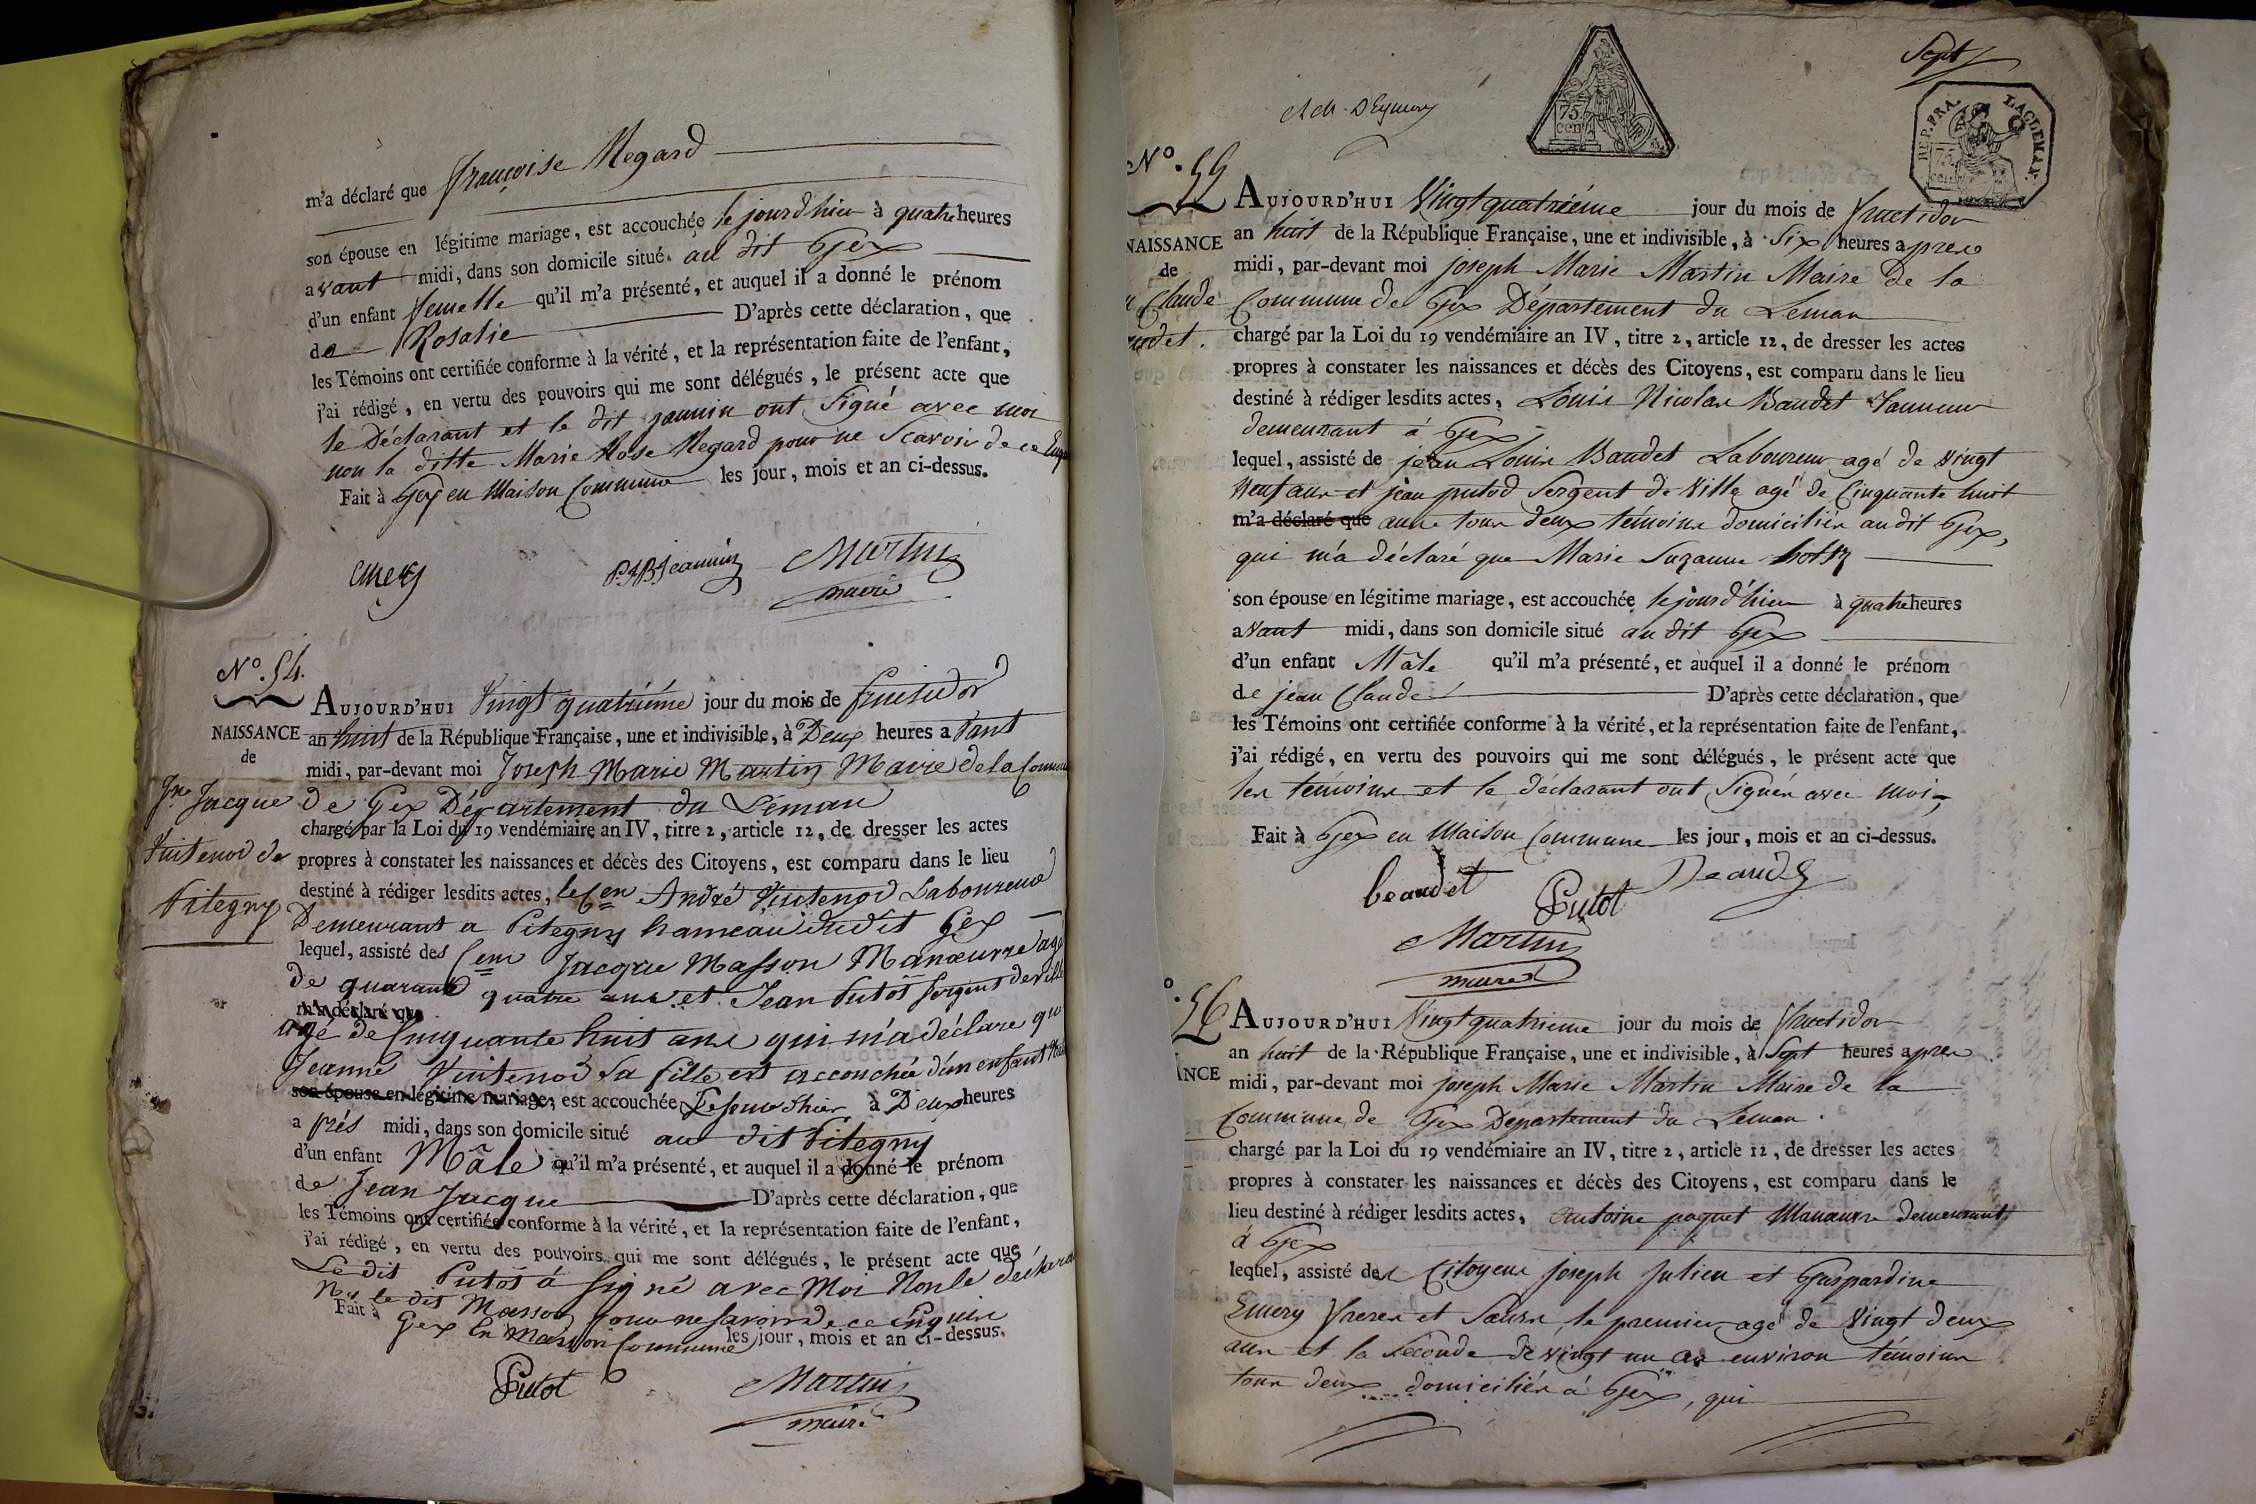 m'a déclaré que Françoise Megard
son épouse en légitime mariage, est accouchée le jourdhier à quatre heures
avant midi, dans son domicile situé au dit Gex
d'un enfant femelle qu'il m'a présenté, et auquel il a donné le prénom
de Rosalie D'après cette déclaration, que
les Témoins ont certifiée conforme à la vérité, et la représentation faite de l'enfant,
j'ai rédigé, en vertu des pouvoirs qui me sont délégués, le présent acte que
le Déclarant et le dit jannin ont Signé avec moi
non la ditte Marie Rose Megard pour ne Scavoir de ce
Fait à Gex en Maison Commune les jour, mois et an ci-dessus.
Emery P.J.B. Jeannin Martin
maire
N°. 54.
AUJOURD'HUI Vingt quatriéme jour du mois de fructidor
NAISSANCE
an huit de la République Française, une et indivisible, à Deux heures avant
de
midi, par-devant moi Joseph Marie Martin Maire de la
Jn. Jacque
de Gex Département du Léman
chargé par la Loi du 19 vendémiaire an IV, titre 2, article 12, de dresser les actes
Vuitenod de
propres à constater les naissances et décès des Citoyens, est comparu dans le lieu
destiné à rédiger lesdits actes, le Cen André Vuitenod Laboureur
Pitegny
Demeurant a Pitegny hameau dudit Gex
lequel, assisté des Cens Jacque Masson Manoeuvre agé
de quarante quatre ans et Jean Putod Sergent de ville
m'a déclaré que
agé de Cinquante huit ans qui m'a déclaré que
Jeanne Vuitenod Sa fille est accouchée d'un enfant
son épouse en légitime mariage, est accouchée Le jourdhier à Deux heures
après midi, dans son domicile situé au dit Pitegny
d'un enfant Mâle qu'il m'a présenté, et auquel il a donné le prénom
de Jean Jacque D'après cette déclaration, que
les Témoins ont certifiée conforme à la vérité, et la représentation faite de l'enfant,
j'ai rédigé, en vertu des pouvoirs qui me sont délégués, le présent acte que
Le dit Putod à Signé avec Moi Non le
Ni le dit Masson pour ne Savoir de ce Enquis
Fait à Gex En Maison Commune les jour, mois et an ci-dessus.
Putot Martin
maire
Sept
75. cen
REP. FRA. LAGLEMAN.
75. cen
N°. 55
AUJOURD'HUI Vingt quatriéme jour du mois de fructidor
NAISSANCE
an huit de la République Française, une et indivisible, à Six heures apres
de
midi, par-devant moi joseph Marie Martin Maire de la
Claude
Commune de Gex Département du Leman
chargé par la Loi du 19 vendémiaire an IV, titre 2, article 12, de dresser les actes
propres à constater les naissances et décès des Citoyens, est comparu dans le lieu
destiné à rédiger lesdits actes, Louis Nicolas Baudet Tanneur
demeurant à Gex
lequel, assisté de jean Louis Baudet Laboureur agé de Vingt
Neuf ans et jean putod Sergent de Ville agé de Cinquante huit
m'a déclaré que ans tous deux témoins domiciliés au dit Gex,
qui m'a déclaré que Marie Suzanne
son épouse en légitime mariage, est accouchée le jourd'hier à quatre heures
avant midi, dans son domicile situé au dit Gex
d'un enfant Mâle qu'il m'a présenté, et auquel il a donné le prénom
de jean Claude D'après cette déclaration, que
les Témoins ont certifiée conforme à la vérité, et la représentation faite de l'enfant,
j'ai rédigé, en vertu des pouvoirs qui me sont délégués, le présent acte que
les témoins et le déclarant ont Signés avec moi,
Fait à Gex en Maison Commune les jour, mois et an ci-dessus.
beaudet Putot
Martin
maire
56 AUJOURD'HUI Vingt quatrieme jour du mois de fructidor
an huit de la République Française, une et indivisible, à Sept heures apres
ANCE midi, par-devant moi joseph Marie Martin Maire de la
Commune de Gex Département du Leman.
chargé par la Loi du 19 vendémiaire an IV, titre 2, article 12, de dresser les actes
propres à constater les naissances et décès des Citoyens, est comparu dans le
lieu destiné à rédiger lesdits actes, Antoine paquet Manœuvre demeurant
à Gex
lequel, assisté des Citoyens joseph julien et Gaspardine
Emery freres et Sœurs, le premier agé de Vingt deux
ans et la Séconde de vingt un as environ témoins
tous deux domiciliés à Gex, qui